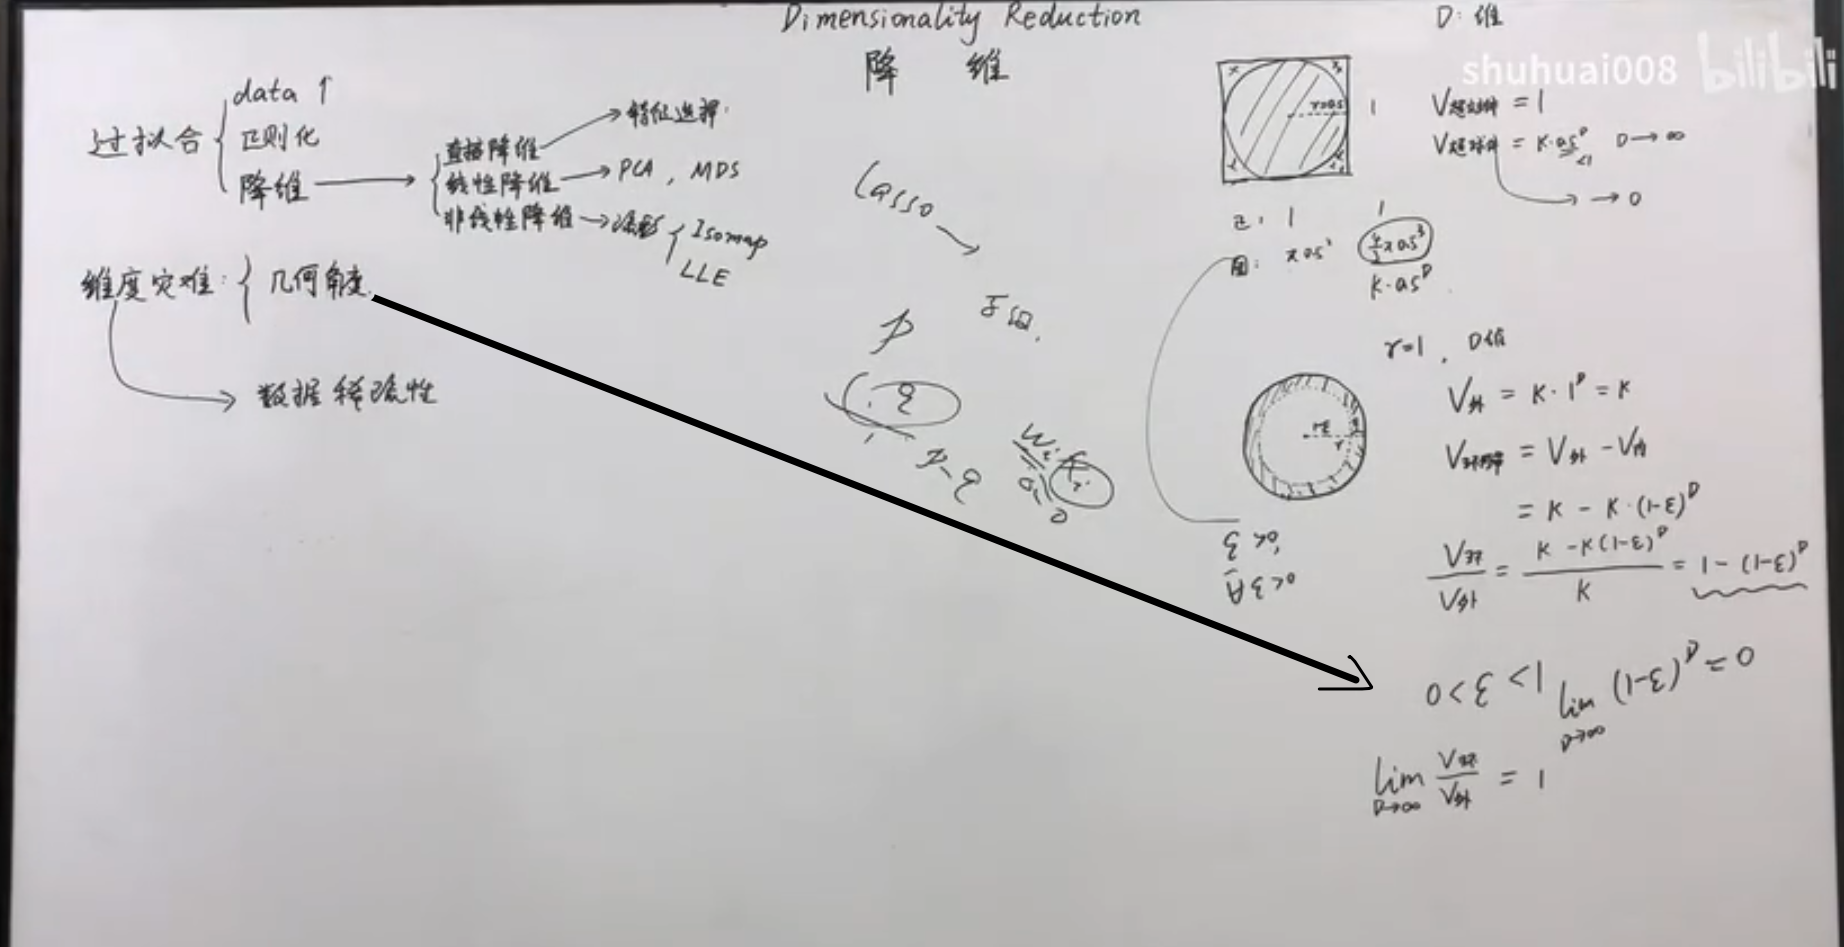 Dimensionality Reduction
降 维
D: 维
shuhuai008 bilibili
过拟合
data ↑
正则化
降维 →
直接降维 → 特征选择.
线性降维 → PCA, MDS
非线性降维 → 流形
Isomap
LLE
维度灾难: 几何角度.
数据稀疏性
Lasso
P
P-q
r=0.5
1
V超立方体 = 1
V超球体 = K·0.5^D D→∞
<1
→ 0
正: 1 1
圆: π0.5² 4/3π0.5³
K·0.5^D
r=1, D维
V外 = K·1^D = K
V环形带 = V外 - V内
= K - K·(1-ε)^D
V环/V外 = (K - K(1-ε)^D)/K = 1 - (1-ε)^D
0<ε<1
lim D→∞ (1-ε)^D = 0
lim D→∞ V环/V外 = 1